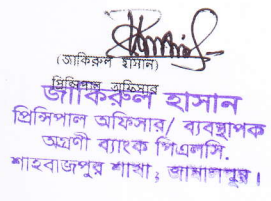 (জাকিরুল হাসান)
প্রিন্সিপাল অফিসার
জাকিরুল হাসান
প্রিন্সিপাল অফিসার/ ব্যবস্থাপক
অগ্রণী ব্যাংক পিএলসি.
শাহবাজপুর শাখা, জামালপুর।